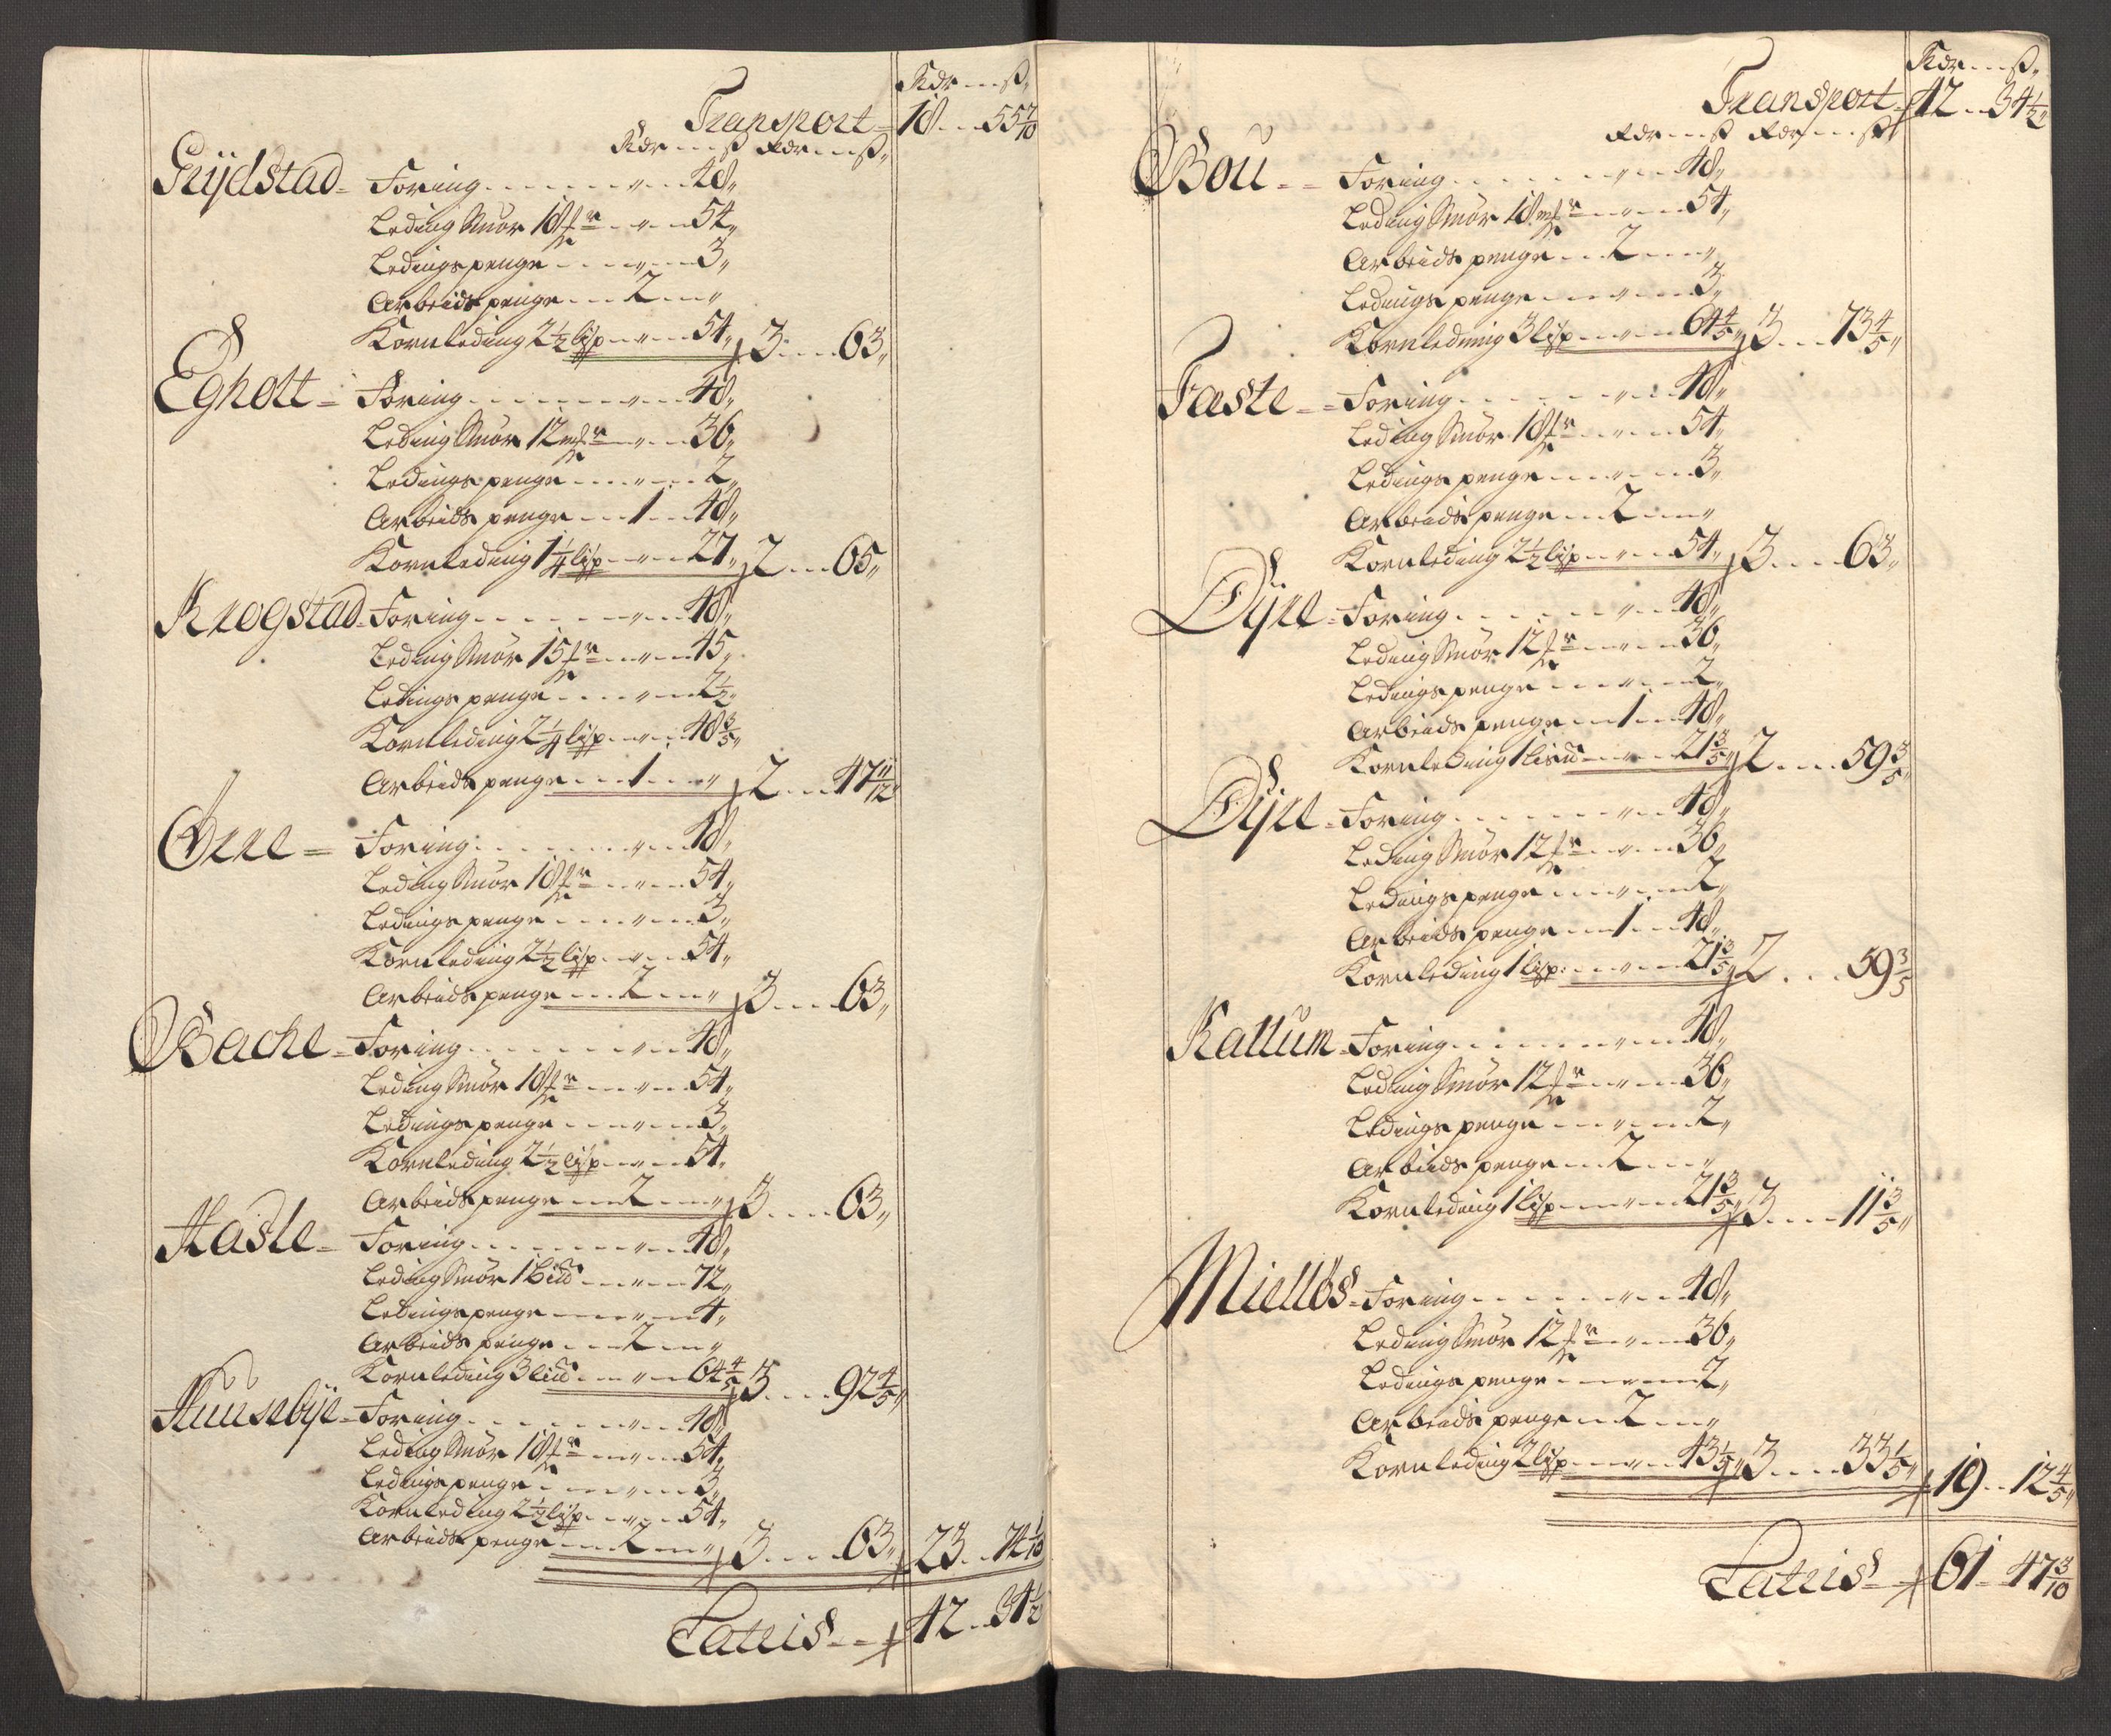 Rdr ß
Transport 18 55 7/10
Rdr ß Rdr ß
Grijdstad Foring 48
Leding Smör 18 54
Ledings penge 3
Arbeids penge 2
Kornleding 2 1/2 lisp 54 3 63
Egholt Foring 48
Leding Smör 12 36
Ledings penge 2
Arbeids penge 1 48
Kornleding 1 1/4 lisp 27 2 65
Krogstad Foring 48
Leding Smör 15 45
Ledings penge 2 1/2
Kornleding 2 1/4 lisp 48 3/5
Arbeids penge 1 2 47 11/12
Ørre Foring 48
Leding Smör 18 54
Ledings penge 3
Kornleding 2 1/2 lisp 54
Arbeids penge 2 3 63
Bache Foring 48
Leding Smör 18 54
Ledings penge 3
Kornleding 2 1/2 lisp 54
Arbeids penge 2 3 63
Hasle Foring 48
Leding Smör 1 72
Ledings penge 4
Arbeids penge 2
Kornleding 3 64 4/5 3 92 4/5
Huusebye Foring 48
Leding Smör 18 54
Ledings penge 3
Kornleding 2 1/2 lisp 54
Arbeids penge 2 3 63 23 74 1/10
Lateris 42 34 1/2
Rdr ß
Transport 42 34 1/2
Rdr ß Rdr ß
Bou Foring 48
Leding Smör 18 54
Arbeids penge 2
Ledings penge 3
Kornleding 3 lisp 64 4/5 3 73 4/5
Faste Foring 48
Leding Smör 18 54
Ledings penge 3
Arbeids penge 2
Kornleding 2 1/2 lisp 54 3 63
Dÿre Foring 48
Leding Smör 12 36
Ledings penge 2
Arbeids penge 1 48
Kornleding 1 21 3/5 2 59 3/5
Dÿre Foring 48
Leding Smör 12 36
Ledings penge 2
Arbeids penge 1 48
Kornleding 1 lisp 21 3/5 2 59 3/5
Kallum Foring 48
Leding Smör 12 36
Ledings penge 2
Arbeids penge 2
Kornleding 1 lisp 21 3/5 3 11 3/5
Miellös Foring 48
Leding Smör 12 36
Ledings penge 2
Arbeids penge 2
Kornleding 2 lisp 43 1/5 3 33 1/5 19 12 4/5
Lateris 61 47 3/10